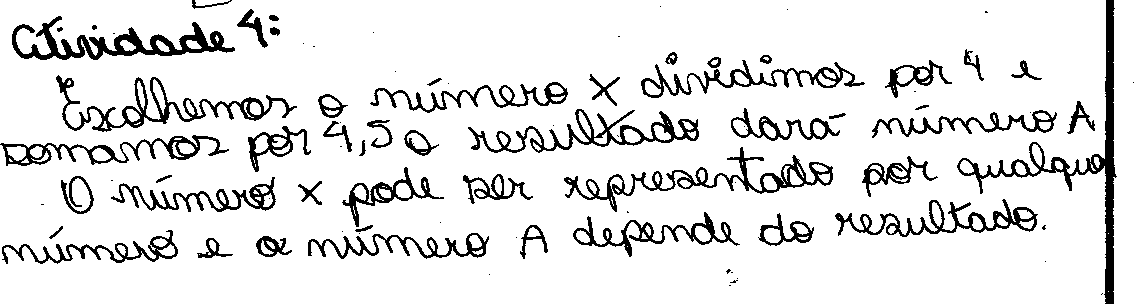 Atividade 4:
Escolhemos o número x dividimos por 4 e
somamos por 4,5 o resultado dará número A
O número x pode ser representado por qualquer
número e o número A depende do resultado.